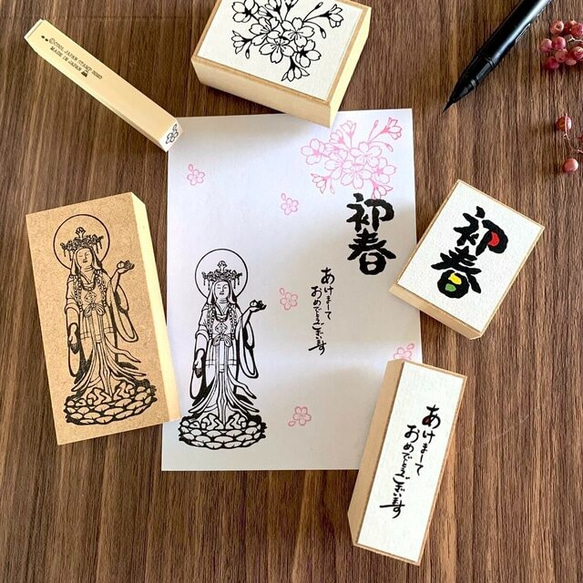 MADE IN JAPAN
初春
あけまして
おめでとうございます
初春
あけまして
おめでとうございます